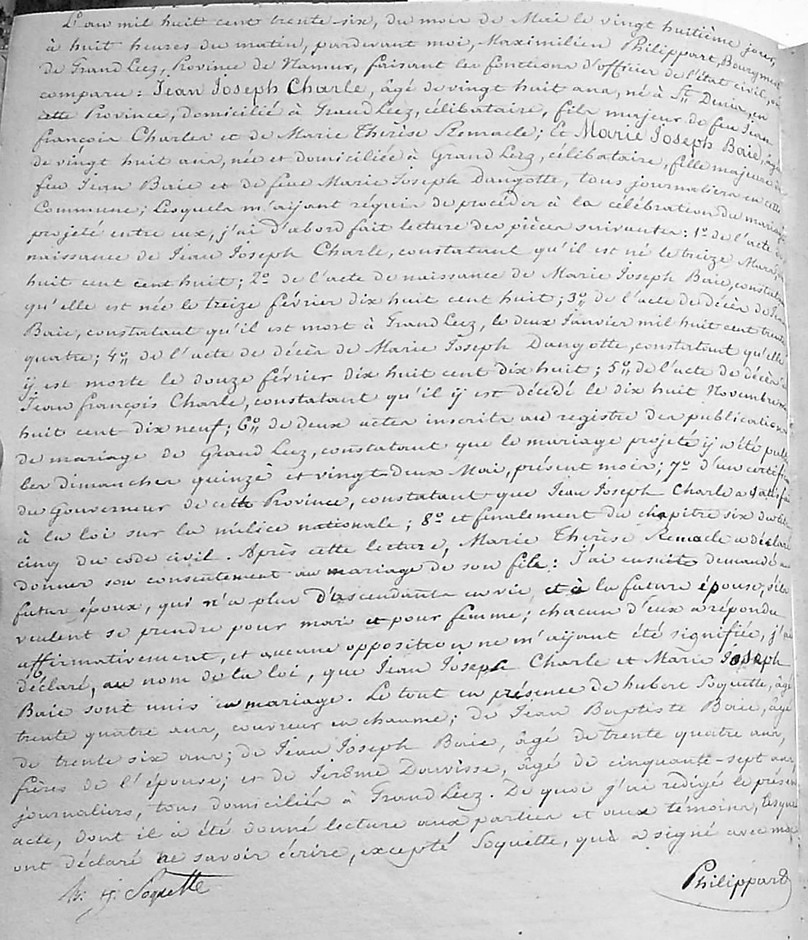 L'an mil huit cent trente six, du mois de Mai le vingt huitième jour,
à huit heures du matin, pardevant moi, Maximilien Philippart, Bourgmest
de Grand Leez, Province de Namur, faisant les fonctions d'officier de l'état civil,
comparu: Jean Joseph Charle, âgé de vingt huit ans, né à St. Denis, en
cette Province, domicilié à Grand Leez, célibataire, fils majeur de feu Jean
françois Charles et de Marie Therèse Remacle; et Marie Joseph Baie, âgée
de vingt huit ans, née et domiciliée à Grand Leez, célibataire, fille majeure de
feu Jean Baie et de feue Marie Joseph Dangotte, tous journaliers en cette
Commune; Lesquels m'aijant réquis de procéder à la célébration du mariage
projeté entre eux, j'ai d'abord fait lecture des pièces suivantes: 1° de l'acte de
naissance de Jean Joseph Charle, constatant qu'il est né le treize Mars
huit cent cent huit; 2° de l'acte de naissance de Marie Joseph Baie, constatant
qu'elle est née le treize février dix huit cent huit; 3° de l'acte de décès de Jean
Baie, constatant qu'il est mort à Grand Leez, le deux Janvier mil huit cent trente
quatre; 4° de l'acte de décès de Marie Joseph Dangotte, constatant qu'elle
ij est morte le douze février dix huit cent dix huit; 5° de l'acte de décès de
Jean françois Charle, constatant qu'il ij est décédé le dix huit Novembre
huit cent dix neuf; 6° de deux actes inscrits au registre des publications
de mariage de Grand Leez, constatant que le mariage projeté ij a été publié
les dimanches quinze et vingt-deux Mai, présent mois; 7° d'un certifi
du Gouverneur de cette Province, constatant que Jean Joseph Charle a satisfai
à la loi sur la milice nationale; 8° et finalement du chapitre six du titre
cinq du code civil. Après cette lecture, Marie Therèse Remacle a déclaré
donner son consentement au mariage de son fils: J'ai ensuite demandé au
futur époux, qui n'a plus d'ascendants en vie, et à la future épouse, s'ils
veulent se prendre pour mari et pour femme; chacun d'eux a répondu
affirmativement, et aucune opposition ne m'aijant été signifiée, j'ai
déclaré, au nom de la loi, que Jean Joseph Charle et Marie Joseph
Baie sont unis en mariage. Le tout en présence de hubert Soquette, âgé
trente quatre ans, couvreur en chaume; de Jean Baptiste Baie, âgé
de trente six ans; de Jean Joseph Baie, âgé de trente quatre ans,
frères de l'épouse; et de Jérôme Douvisse, âgé de cinquante-sept ans,
journaliers, tous domiciliés à Grand Leez. De quoi j'ai redigé le présent
acte, dont il a été donné lecture aux parties et aux témoins, lesquels
ont déclaré ne savoir écrire, excepté Soquette, qui a signé avec moi
h. j. Soquette
Philippart